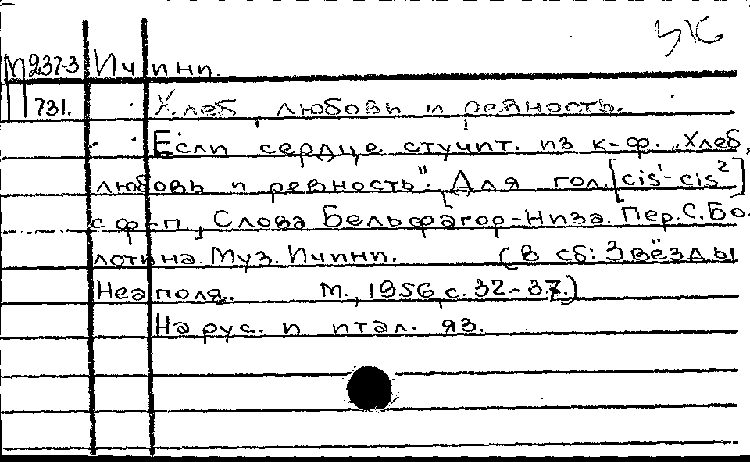 316
М237-3 Ичини.
П 731. Хлеб, любовь и ревность.
Если сердце стучит. из к-ф. "Хлеб,
любовь и ревность". Для гол. [cis¹-cis²]
с ф-п, Слова Бельфагор-Низа. Пер. С. Бо-
лотина. Муз. Ичини. (В сб: Звёзды
Неаполя. М., 1956, с. 32-37.)
На рус. и итал. яз.